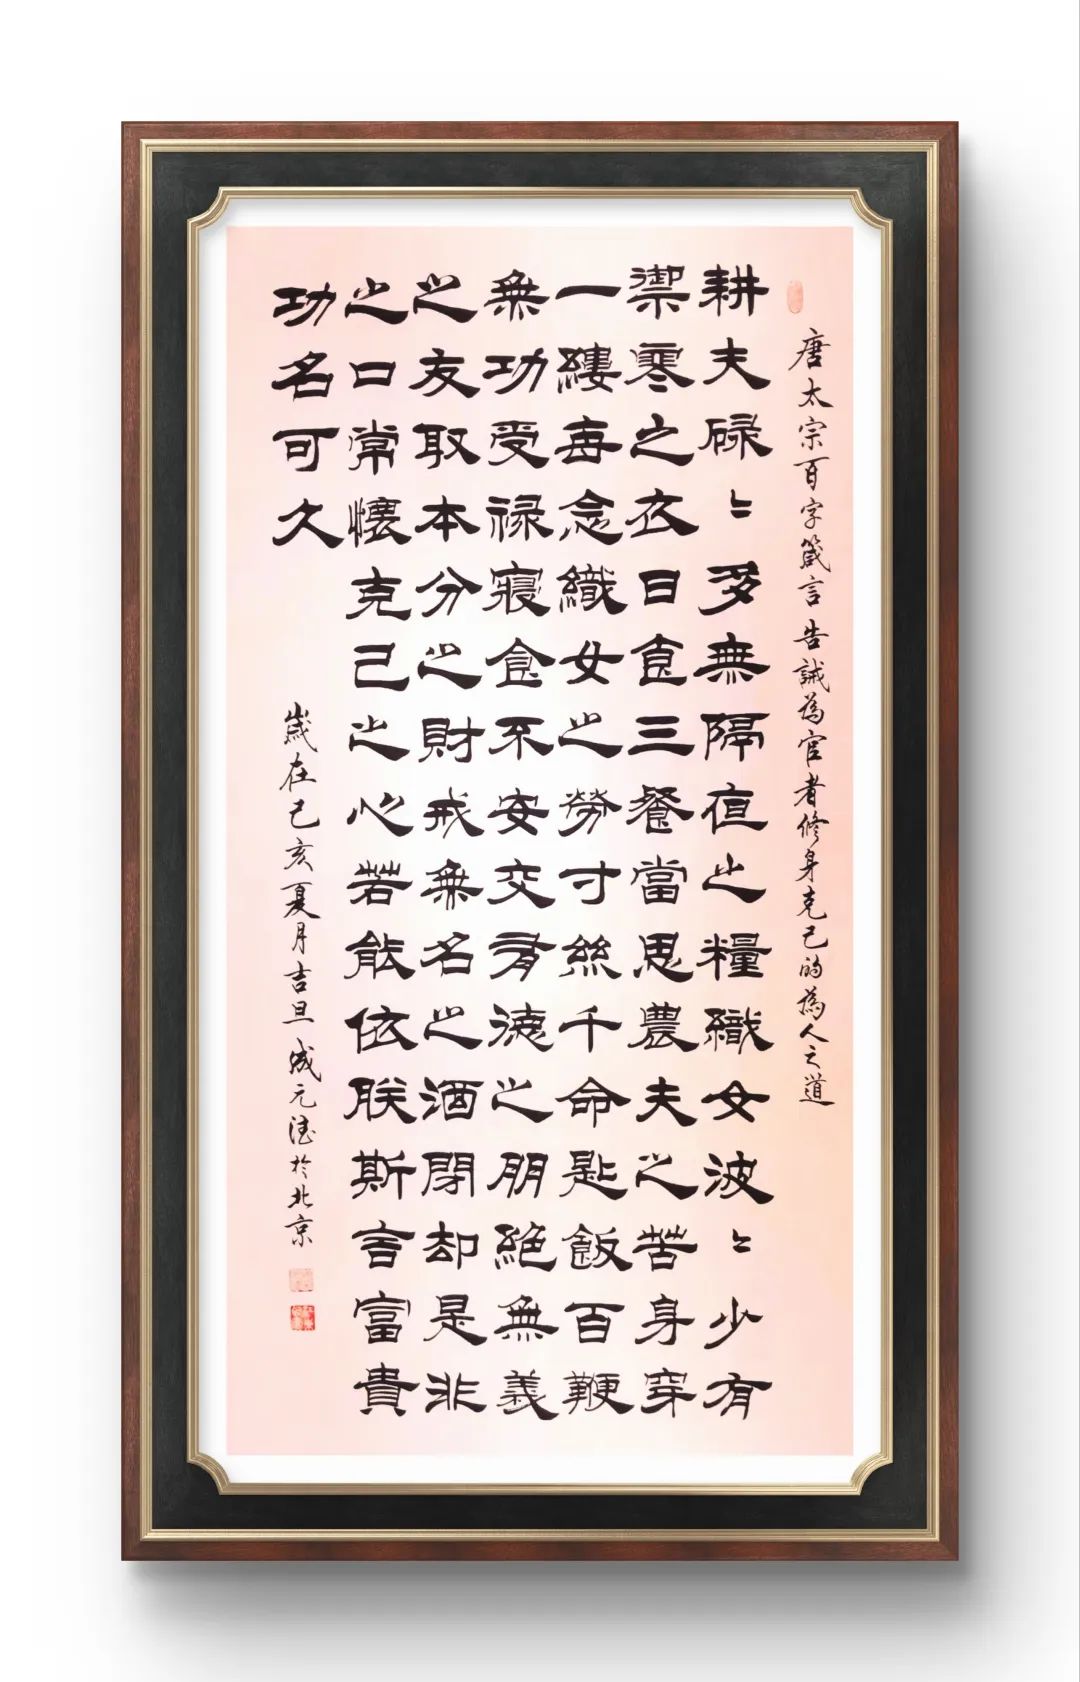 唐太宗百字箴言告誡為官者修身克己的為人之道
耕夫碌〻多無隔亱之糧織女波〻少有
禦寒之衣日食三餐當思農夫之苦身穿
一縷每念織女之勞寸絲千命匙飯百鞭
無功受禄寢食不安交有德之朋絕無義
之友取本分之財戒無名之酒閉却是非
之口常懷克己之心若能依朕斯言富貴
功名可久
歲在己亥夏月吉旦成元德於北京